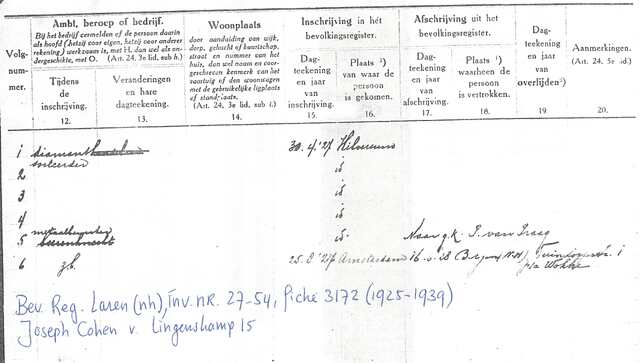 Volg-
num-
mer.
Ambt, beroep of bedrijf.
Bij het bedrijf vermelden of de persoon daarin
als hoofd (hetzij voor eigen, hetzij voor anderer
rekening) werkzaam is, met H. dan wel als on-
dergeschikte, met O. (Art. 24, 3e lid, sub h.)
Tijdens
de
inschrijving.
12.
Veranderingen
en hare
dagteekening.
13.
Woonplaats
door aanduiding van wijk,
dorp, gehucht of buurtschap,
straat en nummer van het
huis, dan wel naam en voor-
geschreven kenmerk van het
vaartuig of den woonwagen
met de gebruikelijke ligplaats
of standplaats.
(Art. 24, 3e lid, sub i.)
14.
Inschrijving in het
bevolkingsregister.
Dag-
teekening
en jaar
van
inschrijving.
15.
Plaats 1)
van waar de
persoon
is gekomen.
16.
Afschrijving uit het
bevolkingsregister.
Dag-
teekening
en jaar
van
afschrijving.
17.
Plaats 1)
waarheen de
persoon
is vertrokken.
18.
Dag-
teekening
en jaar
van
overlijden 2)
19.
Aanmerkingen.
(Art. 24, 5e lid.)
20.
1 diamant 30.4.'27 Hilversum
sorteerder
2 id
3 id
4 id
5 id Naar g.k. van Praag
6 z.b. 25.8.'27 Amsterdam 16.5.28
Bev. Reg. Laren (nh), Inv. nR. 27-54, fiche 3172 (1925-1939)
Joseph Cohen v. Lingenskamp 15